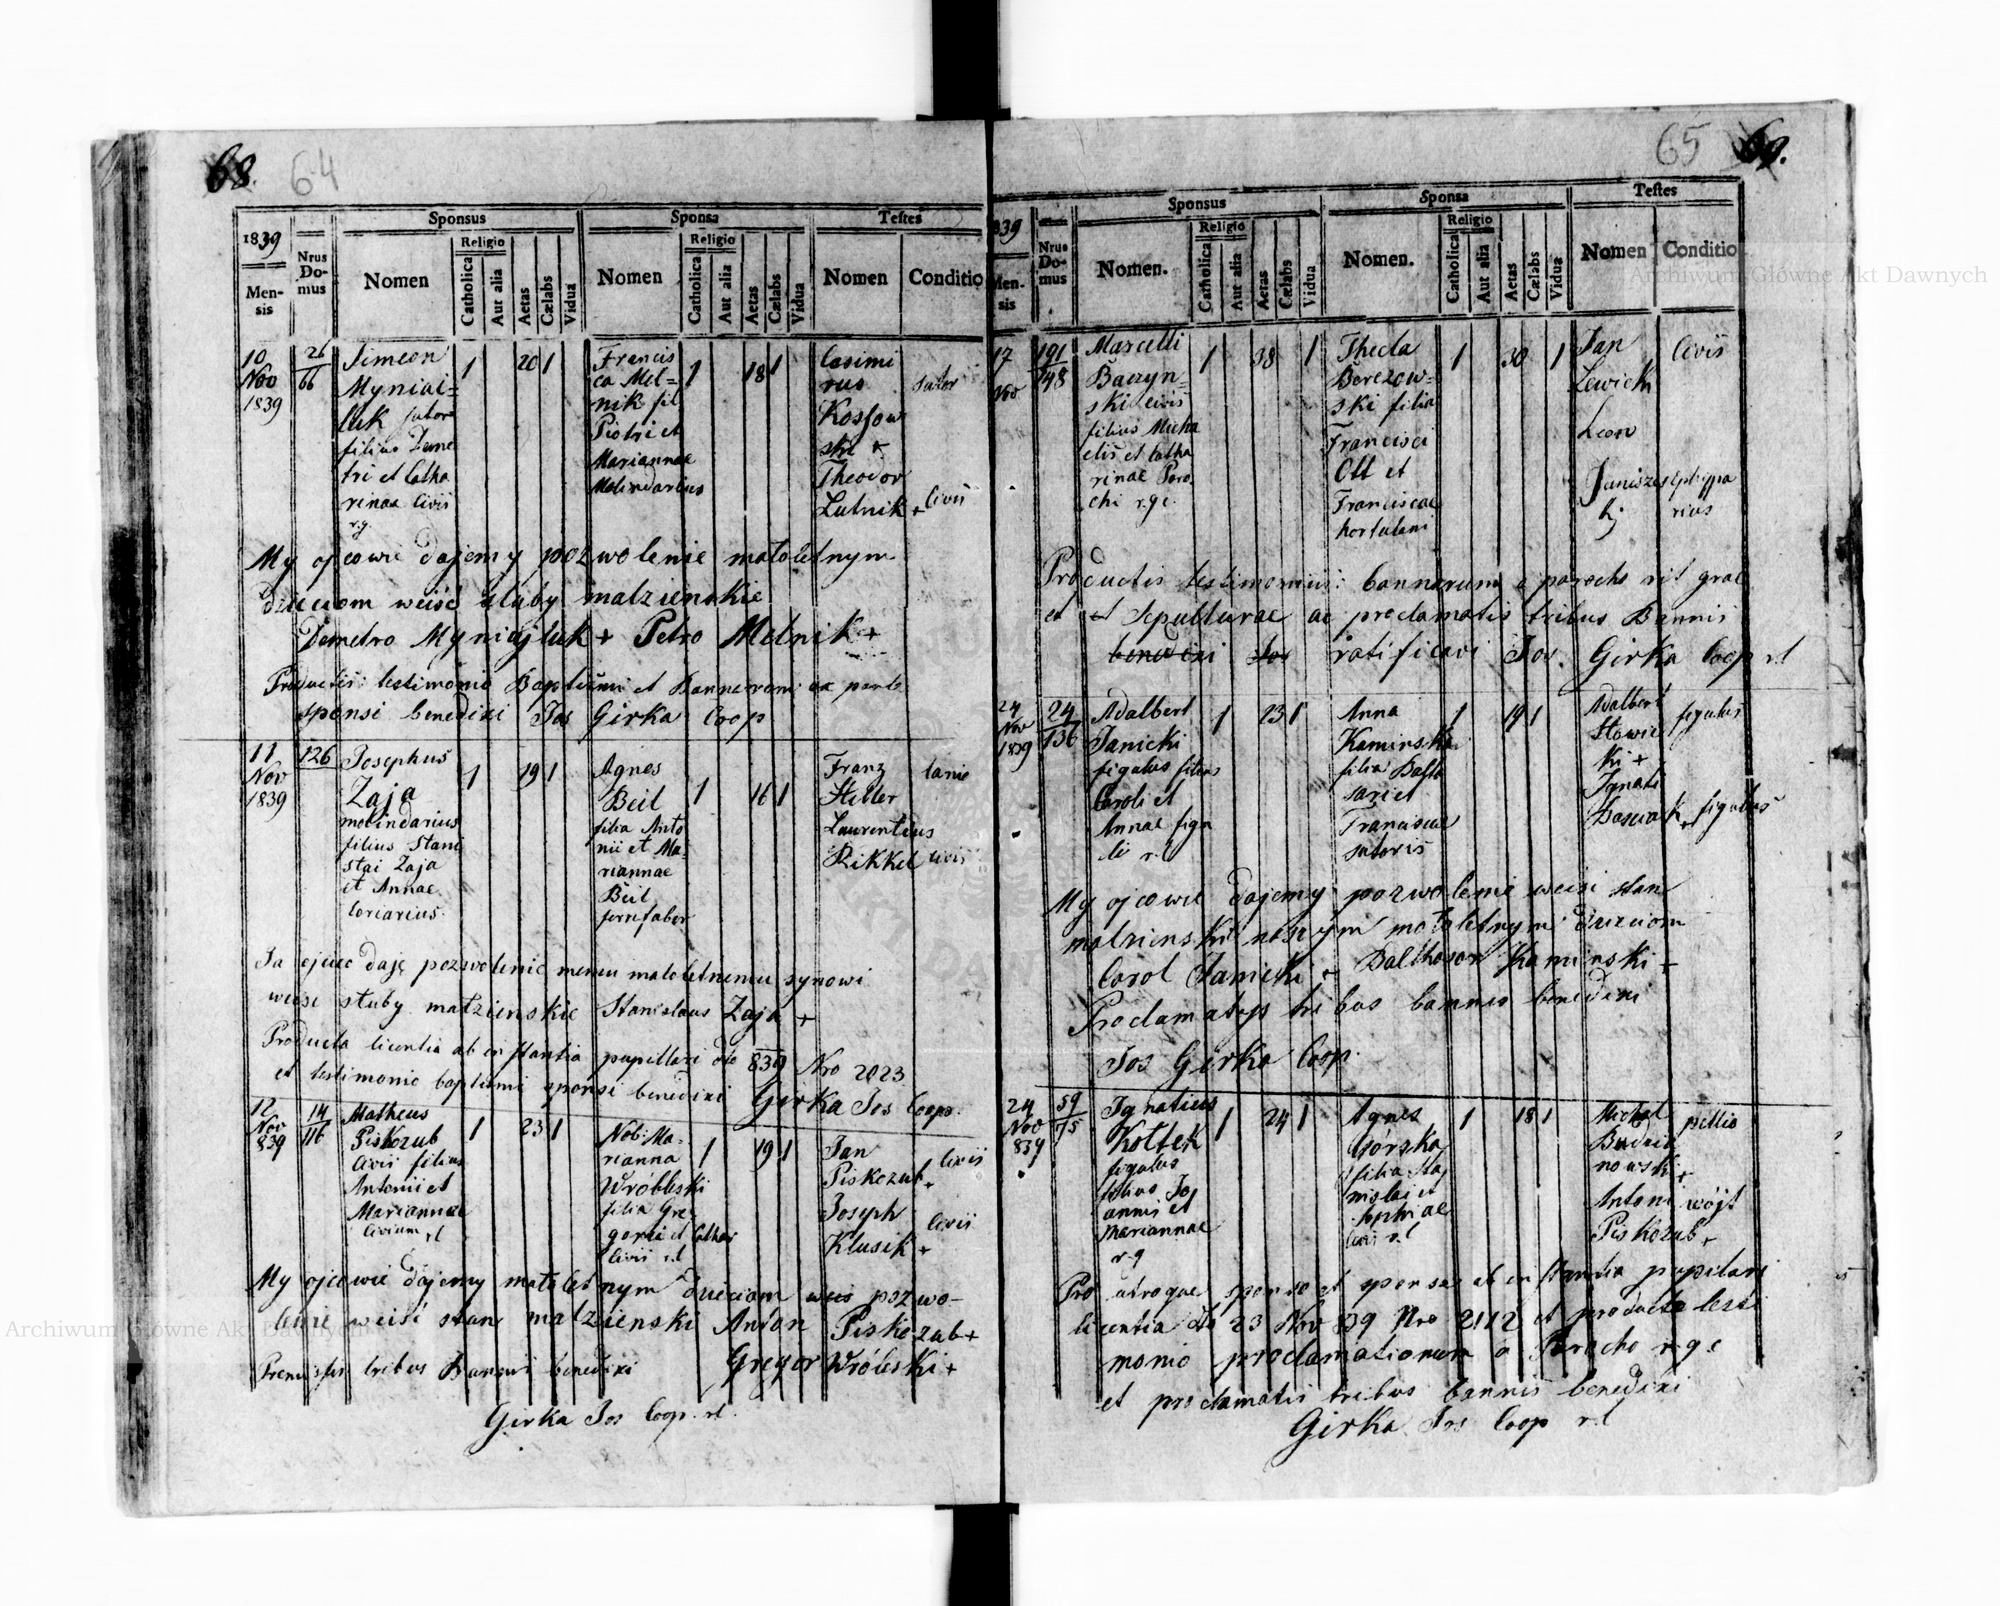 68. 64
Sponsus Sponsa Testes
1839
Mensis
Nrus Domus
Nomen
Religio
Catholica
Aut alia
Aetas
Cælabs
Vidua
Nomen
Religio
Catholica
Aut alia
Aetas
Cælabs
Vidua
Nomen
Conditio
10
Nov
1839
66
Simeon
filius Deme
tri et Catha
rinae Civis
r.g.
1 20 1
Francis
ca Mel=
nik fil
Piotri et
Mariannae
Molindarius
1 18 1
Casimi
rus
Kossow
ski +
Theodor
Lutnik +
Sutor
Civis
My ojcowie dajemy pozwolenie małoletnym
dzieciom weiść śluby malzienskie
Demetro Myniajluk + Petro Melnik +
Productis testimonio Baptismi et Bannorum ex parte
sponsi benedixi Jos Girka Coop
11
Nov
1839
126
Josephus
Zaja
molindarius
filius Stani
slai Zaja
et Annae
Coriarius
1 19 1
Agnes
Beil
filia Anto
nii et Ma
riannae
Beil
ferrifaber
1 16 1
Franz
Stetler
Laurentius
Rikkel
lanio
civis
Ja ojciec daję pozwolenie memu małoletnemu synowi
weiść śluby malzienskie Stanislaus Zaja +
Producta licentia ab instantia pupillari dto 839 Nro 2023
et testimonio baptismi sponsi benedixi Girka Jos Coop.
12
Nov
839
14
116
Matheus
Piskozub
Civis filius
Antonii et
Mariannae
Civium r.l
1 23 1
Nob: Ma=
rianna
Wróbleski
filia Gre
gorii et Catha
Civis r.l
1 19 1
Jan
Piskozub +
Joseph
Klusik +
Civis
Civis
My ojcowie dajemy małoletnym dzieciom pozwo-
lenie weiść stan malzienski Anton Piskozub +
Gregor Wróbleski +
Premissis tribus Bannis benedixi
Girka Jos Coop. r.l.
65 69.
Sponsus Sponsa Testes
839
Mensis
Nrus Domus
Nomen.
Religio
Catholica
Aut alia
Aetas
Cælabs
Vidua
Nomen.
Religio
Catholica
Aut alia
Aetas
Cælabs
Vidua
Nomen
Conditio
17
Nov
191
148
Marcelli
Baczyn=
ski civis
filius Micha
elis et Catha
rinae Paro
chi r.g.c.
1 38 1
Thecla
Berezow=
ski filia
Francisci
Ott et
Franciscae
hortulani
1 30 1
Jan
Lewicki
Leon
Civis
Productis testimoniis: bannorum a parocho rit grae
et Sepulturae ac proclamatis tribus Bannis
benedixi Jos ratificavi Jos. Girka Coop r.l
24
Nov
1839
24
136
Adalbert
Janicki
figulus filius
Caroli et
Annae figu
li r.l
1 23 1
Anna
Kaminska
filia Balta
sari et
Franciscae
sutoris
1 19 1
Adalbert
Ignati
figulus
figulus
My ojcowie dajemy pozwolenie weiść stan
malzienski naszym małoletnym dzieciom
Carol Janicki + Balthasar Kaminski +
Proclamatis tribus bannis benedixi
Jos Girka Coop.
24
Nov
839
59
75
Ignatius
Kottek
figulus
filius Jo
annis et
Mariannae
r.g
1 24 1
Agnes
Górska
filia Sta
nislai et
Sophiae
civis r.l
1 18 1
Michal
nowski +
Antoni
Piskozub +
pellio
wójt
Pro utroque sponso et sponsae ab instantia pupilari
licentia dto 23 Nov 839 Nro 2112 et producto testi
monio proclamationum a Parocho r.g.c
et proclamatis tribus bannis benedixi
Girka Jos Coop r.l
Archiwum Główne Akt Dawnych
Archiwum Główne Akt Dawnych